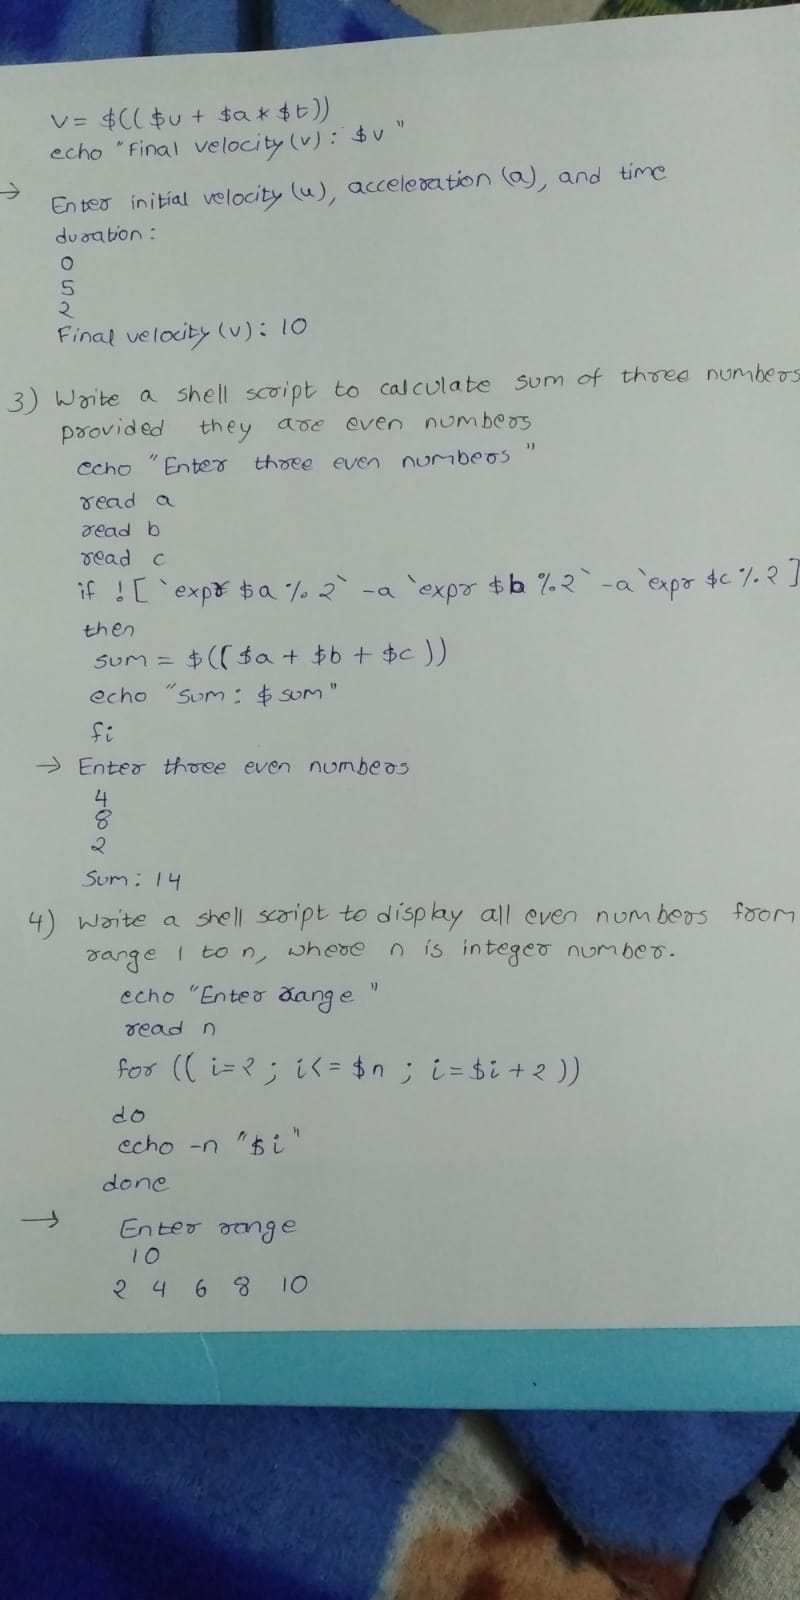 v= $(($u + $a * $t))
echo "Final velocity (v): $v"
→ Enter initial velocity (u), acceleration (a), and time
duration:
0
5
2
Final velocity (v): 10
3) Write a shell script to calculate sum of three numbers
provided they are even numbers
echo "Enter three even numbers"
read a
read b
read c
if ! [ `expr $a % 2` -a `expr $b % 2` -a `expr $c % 2 ]
then
sum = $(($a + $b + $c))
echo "Sum: $sum"
fi
→ Enter three even numbers
4
8
2
Sum: 14
4) Write a shell script to display all even numbers from
range 1 to n, where n is integer number.
echo "Enter range"
read n
for (( i=2 ; i<= $n ; i=$i+2 ))
do
echo -n "$i"
done
→ Enter range
10
2 4 6 8 10